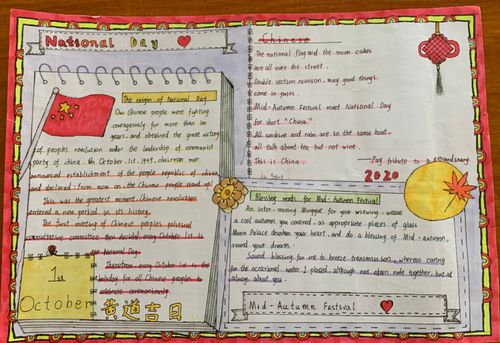 National Day
The origin of National Day
Our Chinese people were fighting
courageously for more than 100
years, and obtained the great victory
of peoples revolution under the leadership of communist
party of china. On October.1st.1949, chairman mao
announced establishment of the people republic of china
and declared: from now on the Chinese people stand up!
This was the greatest Chinese revolution
entered a new period in its history.
The first meeting of Chineses peoples political
consultative committee then decided every October 1st is
the National Day.
Therefore every October 1st is the
holiday for all Chinese peoples
celebrate
1st
October
黄道吉日
Chinese
The national flag and the moon cakes
are all over the street.
Double section reunion, may good things
come in pairs.
Mid-Autumn Festival meet National Day
for short "China".
All sunshine and rain are in the same boat,
all talk about tea but not wine.
This is China
Pay tribute to a
2020
Blessing words for Mid-Autumn Festival
An inter-mixing for your wearing - weave
a cool autumn you covered, as appropriate pieces of glass
Moon Palace drunken your heart, and do a blessing of Mid-autumn,
round your dream.
Sound blessing for me to breeze transmission, whereas caring
for the occasional water I placed, although not often role together, but is
always about you.
Mid-Autumn Festival